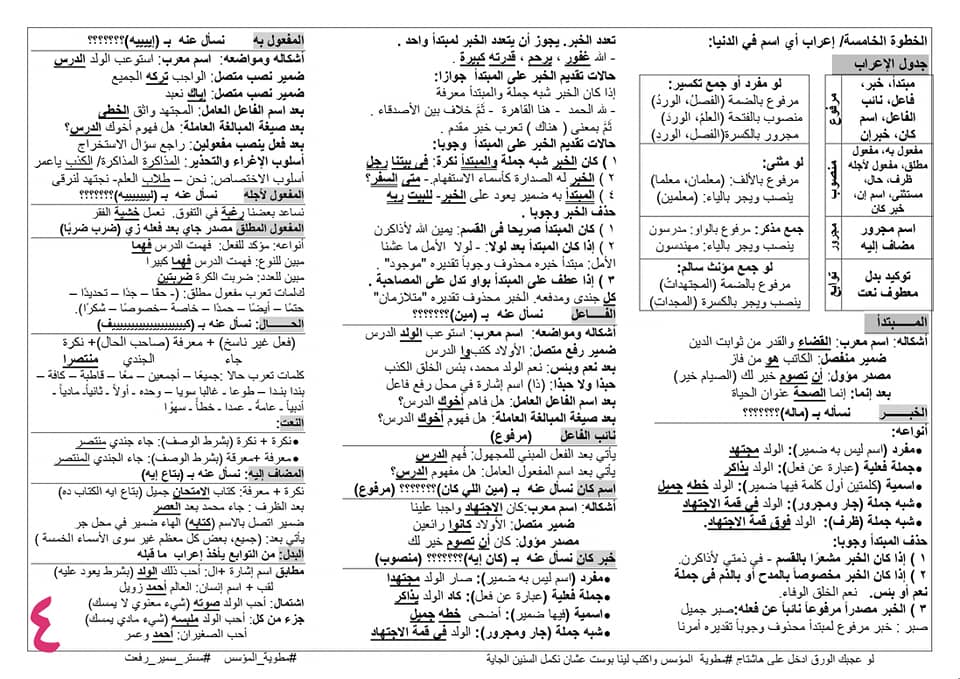 الخطوة الخامسة/ إعراب أي اسم في الدنيا:
جدول الإعراب
مبتدأ، خبر،
فاعل، نائب
الفاعل، اسم
كان، خبران
مرفوع
لو مفرد أو جمع تكسير:
مرفوع بالضمة (الفصلُ، الوردُ)
منصوب بالفتحة (العلمَ، الوردَ)
مجرور بالكسرة(الفصلِ، الوردِ)
مفعول به، مفعول
مطلق، مفعول لأجله
ظرف، حال،
مستثنى، اسم إن،
خبر كان
منصوب
لو مثنى:
مرفوع بالألف: (معلمان، معلما)
ينصب ويجر بالياء: (معلمين)
اسم مجرور
مضاف إليه
مجرور
جمع مذكر: مرفوع بالواو: مدرسون
ينصب ويجر بالياء: مهندسون
توكيد بدل
معطوف نعت
توابع
لو جمع مؤنث سالم:
مرفوع بالضمة (المجتهداتُ)
ينصب ويجر بالكسرة (المجدات)
المـــبتدأ
أشكاله: اسم معرب: القضاء والقدر من ثوابت الدين
ضمير منفصل: الكاتب هو من فاز
مصدر مؤول: أن تصوم خير لك (الصيام خير)
بعد إنما: إنما الصحة عنوان الحياة
الخبـــر نسأله بـ (ماله)؟؟؟؟؟؟؟
أنواعه:
•مفرد (اسم ليس به ضمير): الولد مجتهد
•جملة فعلية (عبارة عن فعل): الولد يذاكر
•اسمية (كلمتين أول كلمة فيها ضمير): الولد خطه جميل
•شبه جملة (جار ومجرور): الولد في قمة الاجتهاد
•شبه جملة (ظرف): الولد فوق قمة الاجتهاد.
حذف المبتدأ وجوبا:
١ ) إذا كان الخبر مشعرًا بالقسم - في ذمتي لأذاكرن.
٢ ) إذا كان الخبر مخصوصاً بالمدح أو بالذم في جملة
نعم أو بنس. نعم الخلق الوفاء.
٣ ) الخبر مصدراً مرفوعاً نائباً عن فعله:صبر جميل
صبر : خبر مرفوع لمبتدأ محذوف وجوباً تقديره أمرنا
تعدد الخبر. يجوز أن يتعدد الخبر لمبتدأ واحد .
- الله غفور ، يرحم ، قدرته كبيرة .
حالات تقديم الخبر على المبتدأ جوازا:
إذا كان الخبر شبه جملة والمبتدأ معرفة
- لله الحمد - هنا القاهرة - ثَمَّ خلاف بين الأصدقاء .
ثَمَّ بمعنى ( هناك ) تعرب خبر مقدم .
حالات تقديم الخبر على المبتدأ وجوبا:
١ ) كان الخبر شبه جملة والمبتدأ نكرة: في بيتنا رجل
٢ ) الخبر له الصدارة كأسماء الاستفهام.- متى السفر؟
٤ ) المبتدأ به ضمير يعود على الخبر- للبيت ربه
حذف الخبر وجوبا .
١ ) كان المبتدأ صريحا في القسم: يمين الله لأذاكرن
٢ ) إذا كان المبتدأ بعد لولا: - لولا الأمل ما عشنا
الأمل: مبتدأ خبره محذوف وجوباً تقديره "موجود" .
٣ ) إذا عطف على المبتدأ بواو تدل على المصاحبة .
كل جندي ومدفعه. الخبر محذوف تقديره "متلازمان"
الفـــاعل نسأل عنه بـ (مين)؟؟؟؟؟؟؟
أشكاله ومواضعه: اسم معرب: استوعب الولد الدرس
ضمير رفع متصل: الأولاد كتبوا الدرس
بعد نعم وبئس: نعم الولد محمد، بئس الخلق الكذب
حبذا ولا حبذا: (ذا) اسم إشارة في محل رفع فاعل
بعد اسم الفاعل العامل: هل فاهم أخوك الدرس؟
بعد صيغة المبالغة العاملة: هل فهوم أخوك الدرس؟
نائب الفاعل (مرفوع)
يأتي بعد الفعل المبني للمجهول: فُهِم الدرس
يأتي بعد اسم المفعول العامل: هل مفهوم الدرس؟
اسم كان نسأل عنه بـ (مين اللي كان) ؟؟؟؟؟؟؟ (مرفوع)
أشكاله: اسم معرب:كان الاجتهاد واجبا علينا
ضمير متصل: الأولاد كانوا رائعين
مصدر مؤول: كان أن تصوم خير لك
خبر كان نسأل عنه بـ (كان إيه)؟؟؟؟؟؟؟ (منصوب)
•مفرد (اسم ليس به ضمير): صار الولد مجتهدا
•جملة فعلية (عبارة عن فعل): كاد الولد يذاكر
•اسمية (فيها ضمير): أضحى خطه جميل
•شبه جملة (جار ومجرور): الولد في قمة الاجتهاد
المفعول به نسأل عنه بـ (إيييه)؟؟؟؟؟؟؟
أشكاله ومواضعه: اسم معرب: استوعب الولد الدرس
ضمير نصب متصل: الواجب تركه الجميع
ضمير نصب متصل: إياك نعبد
بعد اسم الفاعل العامل: المجتهد واثق الخطى
بعد صيغة المبالغة العاملة: هل فهوم أخوك الدرس؟
بعد فعل ينصب مفعولين: راجع سؤال الاستخراج
أسلوب الإغراء والتحذير: المذاكرة المذاكرة/ الكذب ياعمر
أسلوب الاختصاص: نحن – طلاب العلم- نجتهد لنرقى
المفعول لأجله نسأل عنه بـ (لييييييه)؟؟؟؟؟؟؟
نساعد بعضنا رغبة في التفوق. نعسل خشية الفقر
المفعول المطلق مصدر جاي بعد فعله زي (ضرب ضربًا)
أنواعه: مؤكد للفعل: فهمت الدرس فهما
مبين للنوع: فهمت الدرس فهما كبيرا
مبين للعدد: ضربت الكرة ضربتين
كلمات تعرب مفعول مطلق: (- حقًا – جدًا – تحديدًا –
حتمًا – أيضًا – حمدًا – خاصة –خصوصًا – شكرًا).
الحـــال: نسأل عنه بـ (كييييييييييييييييف)
(فعل غير ناسخ) + معرفة (صاحب الحال)+ نكرة
جاء الجندي منتصرا
كلمات تعرب حالا :جميعًا – أجمعين – معًا – قاطبة – كافة –
بندا بندا – طوعا – غالبا سويا – وحده – أولاً – ثانياً- مادياً -
أدبياً – عامة – عمدا – خطأ – سهوًا
النعت:
•نكرة + نكرة (بشرط الوصف): جاء جندي منتصر
•معرفة +معرفة (بشرط الوصف): جاء الجندي المنتصر
المضاف إليه: نسأل عنه بـ (بتاع إيه)
نكرة + معرفة: كتاب الامتحان جميل (بتاع ايه الكتاب ده)
بعد الظرف : جاء محمد بعد العصر
ضمير اتصل بالاسم (كتابه) الهاء ضمير في محل جر
يأتي بعد: (جميع، بعض كل معظم غير سوى الأسماء الخمسة )
البدل: من التوابع يأخذ إعراب ما قبله
مطابق اسم إشارة +ال: أحب ذلك الولد (بشرط يعود عليه)
لقب + اسم إنسان: العالم أحمد زويل
اشتمال: أحب الولد صوته (شيء معنوي لا يمسك)
جزء من كل: أحب الولد ملبسه (شيء مادي يمسك)
أحب الصغيران: أحمد وعمر
٤
لو عجبك الورق ادخل على هاشتاج #مطوية المؤسس واكتب لينا بوست عشان نكمل السنين الجاية
#مطوية_المؤسس #مستر_سمير_رفعت